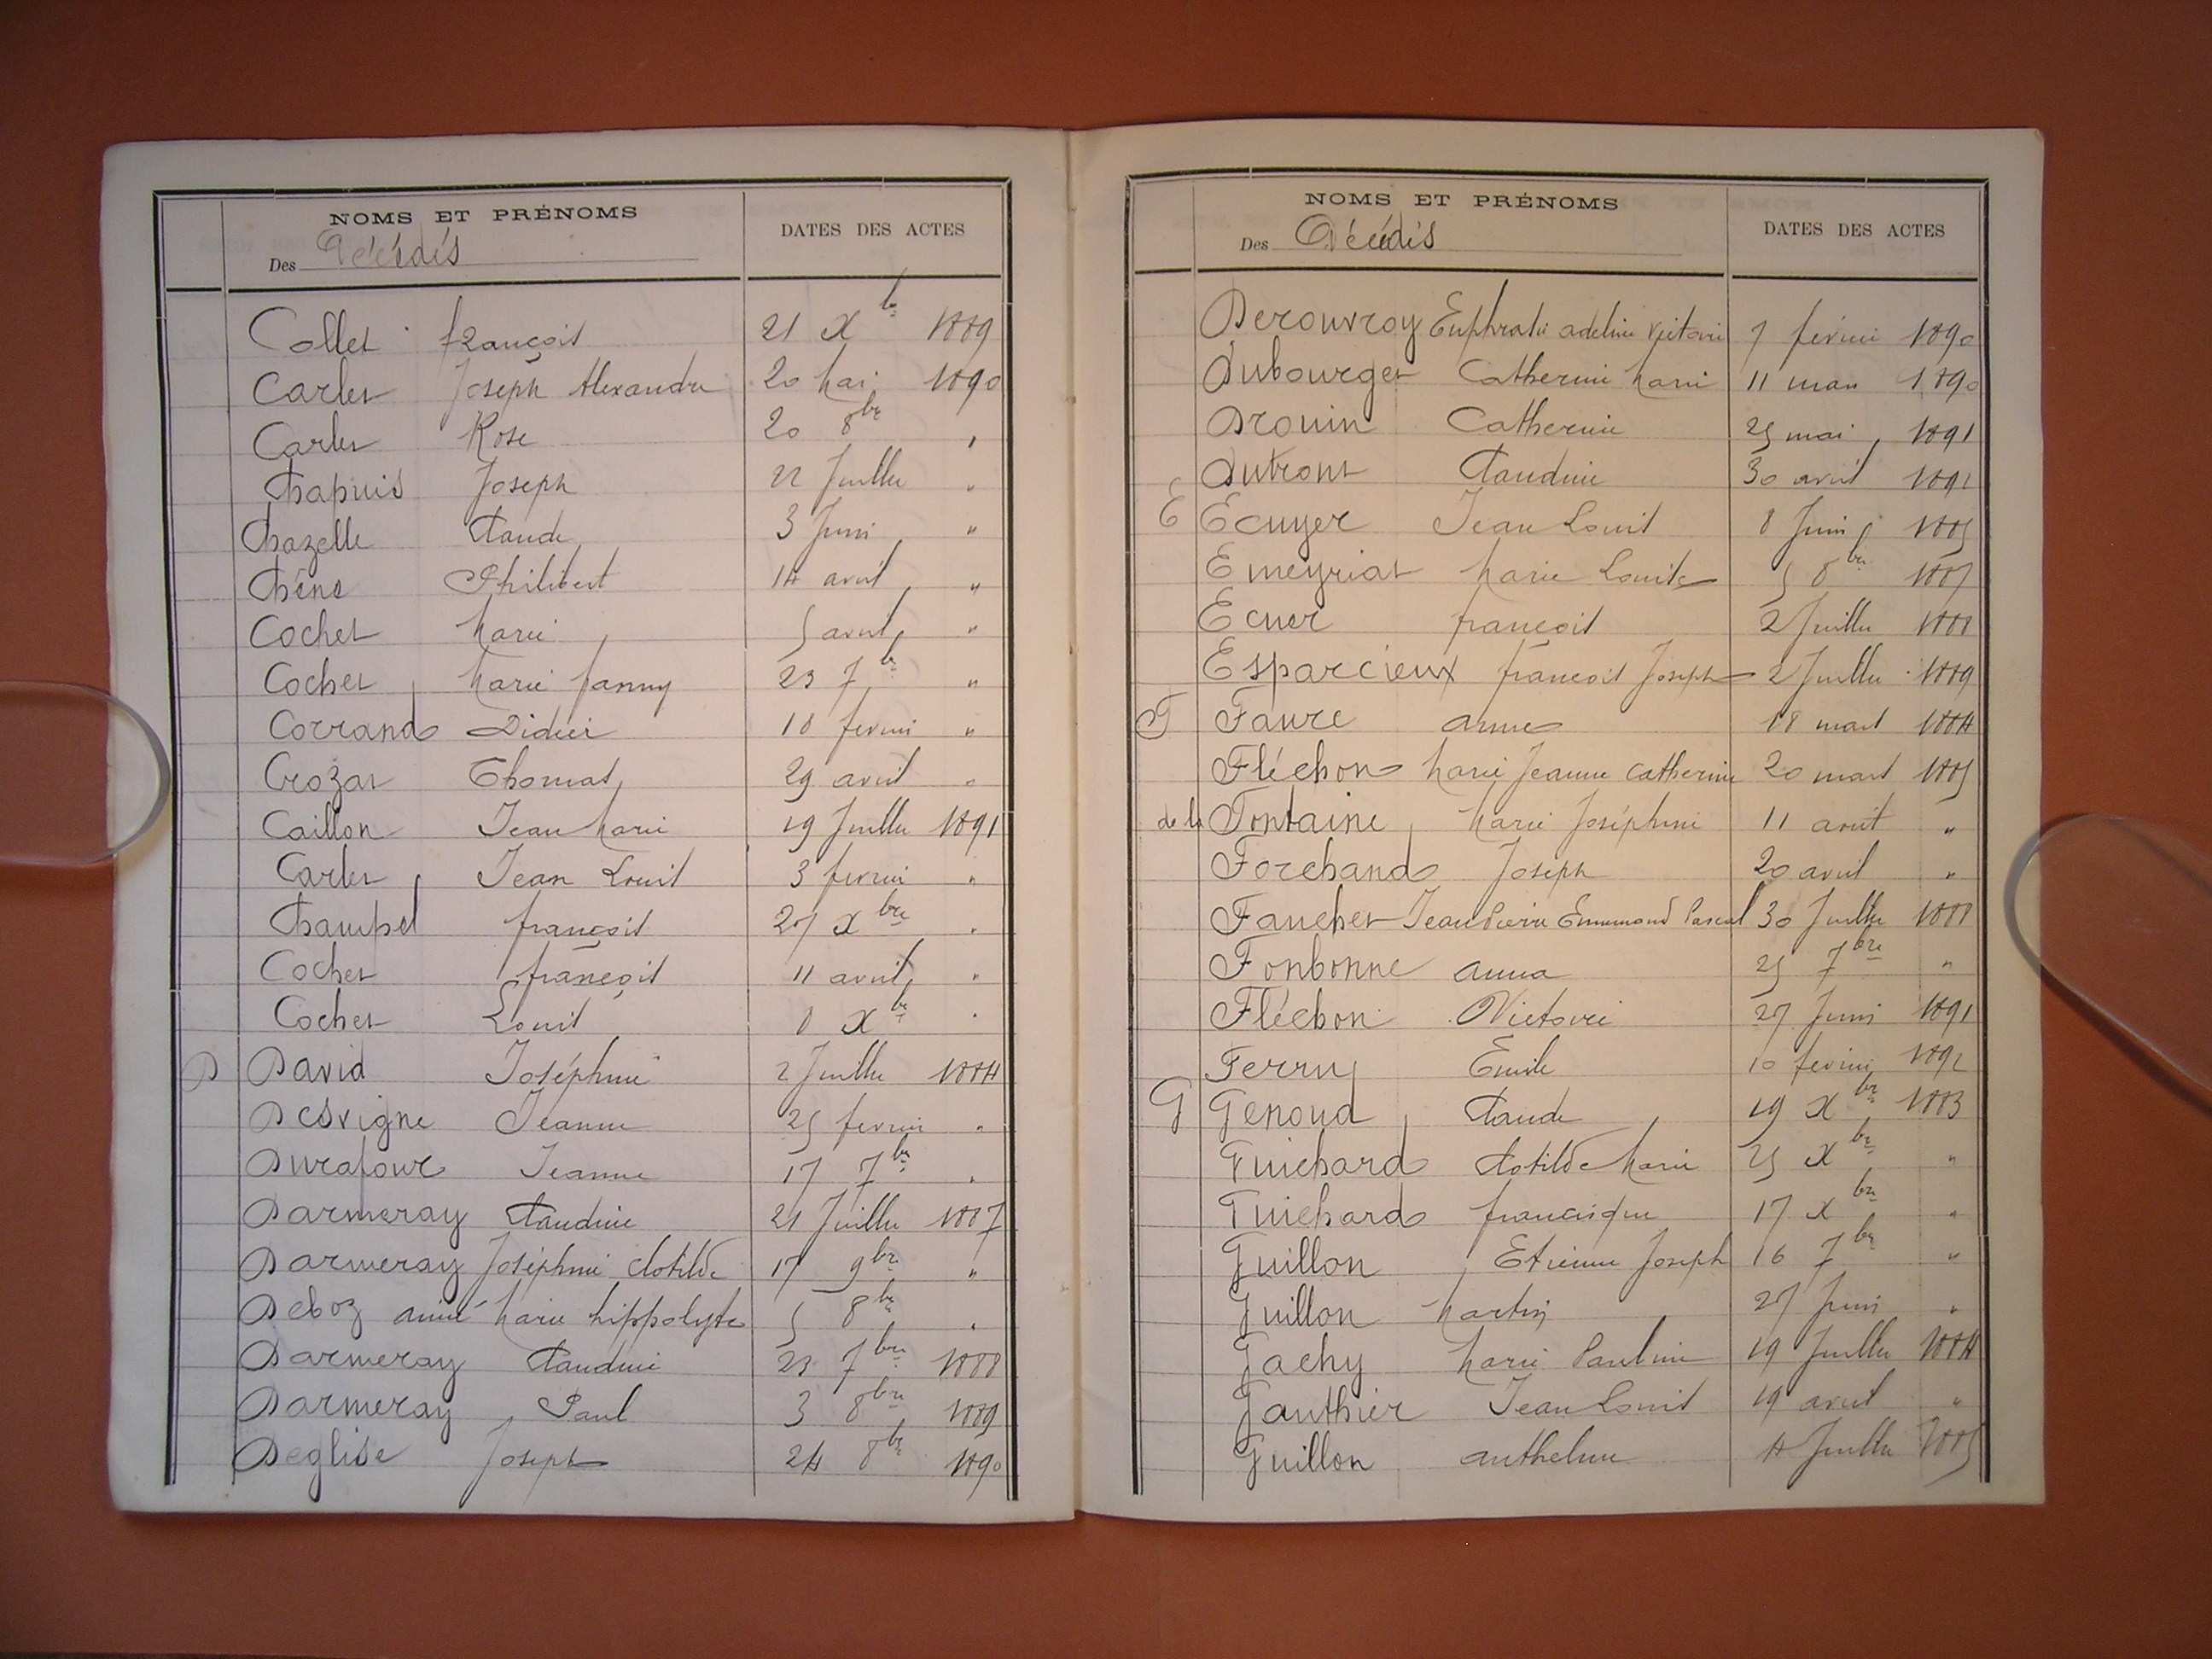 NOMS ET PRÉNOMS
DATES DES ACTES
Des Décédés
Collet françois 21 Xbre 1889
Carlet Joseph Alexandre 20 Mai 1890
Carlet Rose 20 8bre "
Chapuis Joseph 22 Juillet "
Chazelle Claude 3 Juin "
Chêne Philibert 14 avril "
Cochet Marie 5 avril "
Cochet Marie fanny 23 7bre "
Corrand Didier 18 fevrier "
Crozat Thomas 29 avril "
Caillon Jean Marie 19 Juillet 1891
Carlet Jean Louis 3 fevrier "
Champel françois 27 Xbre "
Cochet françois 11 avril "
Cochet Louis 8 Xbre "
D David Joséphine 2 Juillet 1884
Desvigne Jeanne 25 fevrier "
Durafour Jeanne 17 7bre "
Darmeray Claudine 21 Juillet 1887
Darmeray Joséphine Clotilde 17 9bre "
Deboz aimé Marie hippolyte 5 8bre "
Darmeray Claudine 23 7bre 1888
Darmeray Paul 3 8bre 1889
Deglise Joseph 24 8bre 1890
NOMS ET PRÉNOMS
DATES DES ACTES
Des Décédés
Derouvroy Euphrasie adeline Victoire 7 février 1890
Dubourget Catherine Marie 11 mars 1890
Drouin Catherine 25 mai 1891
Dutront Claudine 30 avril 1891
E Ecuyer Jean Louis 8 Juin 1885
Emeyriat Marie Louise 5 8bre 1887
Ecuer françois 2 Juillet 1888
Esparcieux françois Joseph 2 Juillet 1889
F Faure anne 18 mars 1884
Fléchon Marie Jeanne Catherine 20 mars 1885
de la Fontaine Marie Joséphine 11 août "
Forchand Joseph 20 avril "
Fauchet Jean Pierre Emmond Pascal 30 Juillet 1888
Fonbonne anna 25 7bre "
Fléchon Victoire 27 Juin 1891
Ferruy Emile 10 fevrier 1892
G Genoud Claude 19 Xbre 1883
Guichard Clotilde Marie 25 Xbre "
Guichard francisque 17 Xbre "
Guillon Etienne Joseph 16 7bre "
Guillon Martin 27 Juin "
Gachy Marie Pauline 19 Juillet 1884
Gauthier Jean Louis 19 avril "
Guillon anthelme 4 Juillet 1885